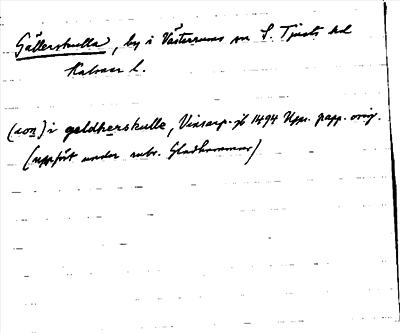 Gällerskulla, by i Västerrums sn S. Tjusts hd
Kalmar l.
(son) i geldkerskulle, Vinsarp. jb 1494 Upps. papp. orig.
(uppfört under rubr. Gladhammar)